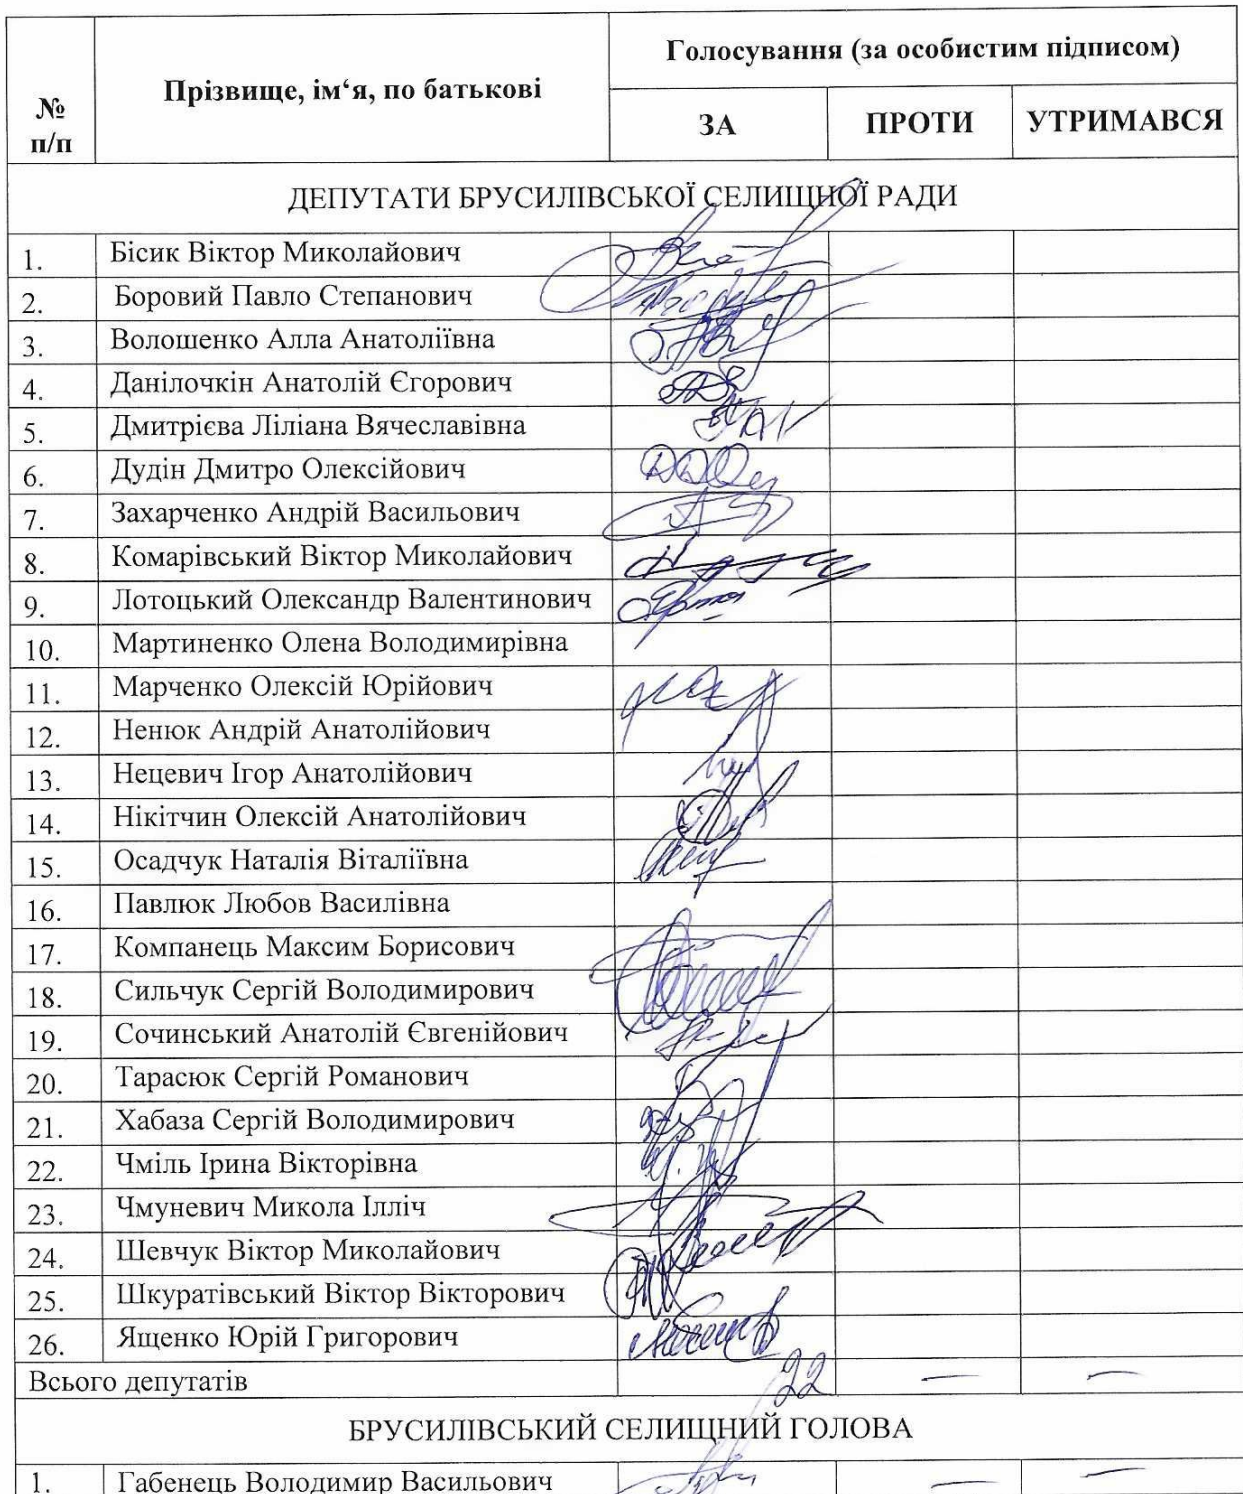 №
п/п
Прізвище, ім‘я, по батькові
Голосування (за особистим підписом)
ЗА
ПРОТИ
УТРИМАВСЯ
ДЕПУТАТИ БРУСИЛІВСЬКОЇ СЕЛИЩНОЇ РАДИ
1. Бісик Віктор Миколайович
2. Боровий Павло Степанович
3. Волошенко Алла Анатоліївна
4. Данілочкін Анатолій Єгорович
5. Дмитрієва Ліліана Вячеславівна
6. Дудін Дмитро Олексійович
7. Захарченко Андрій Васильович
8. Комарівський Віктор Миколайович
9. Лотоцький Олександр Валентинович
10. Мартиненко Олена Володимирівна
11. Марченко Олексій Юрійович
12. Ненюк Андрій Анатолійович
13. Нецевич Ігор Анатолійович
14. Нікітчин Олексій Анатолійович
15. Осадчук Наталія Віталіївна
16. Павлюк Любов Василівна
17. Компанець Максим Борисович
18. Сильчук Сергій Володимирович
19. Сочинський Анатолій Євгенійович
20. Тарасюк Сергій Романович
21. Хабаза Сергій Володимирович
22. Чміль Ірина Вікторівна
23. Чмуневич Микола Ілліч
24. Шевчук Віктор Миколайович
25. Шкуратівський Віктор Вікторович
26. Ященко Юрій Григорович
Всього депутатів 22 — —
БРУСИЛІВСЬКИЙ СЕЛИЩНИЙ ГОЛОВА
1. Габенець Володимир Васильович — —